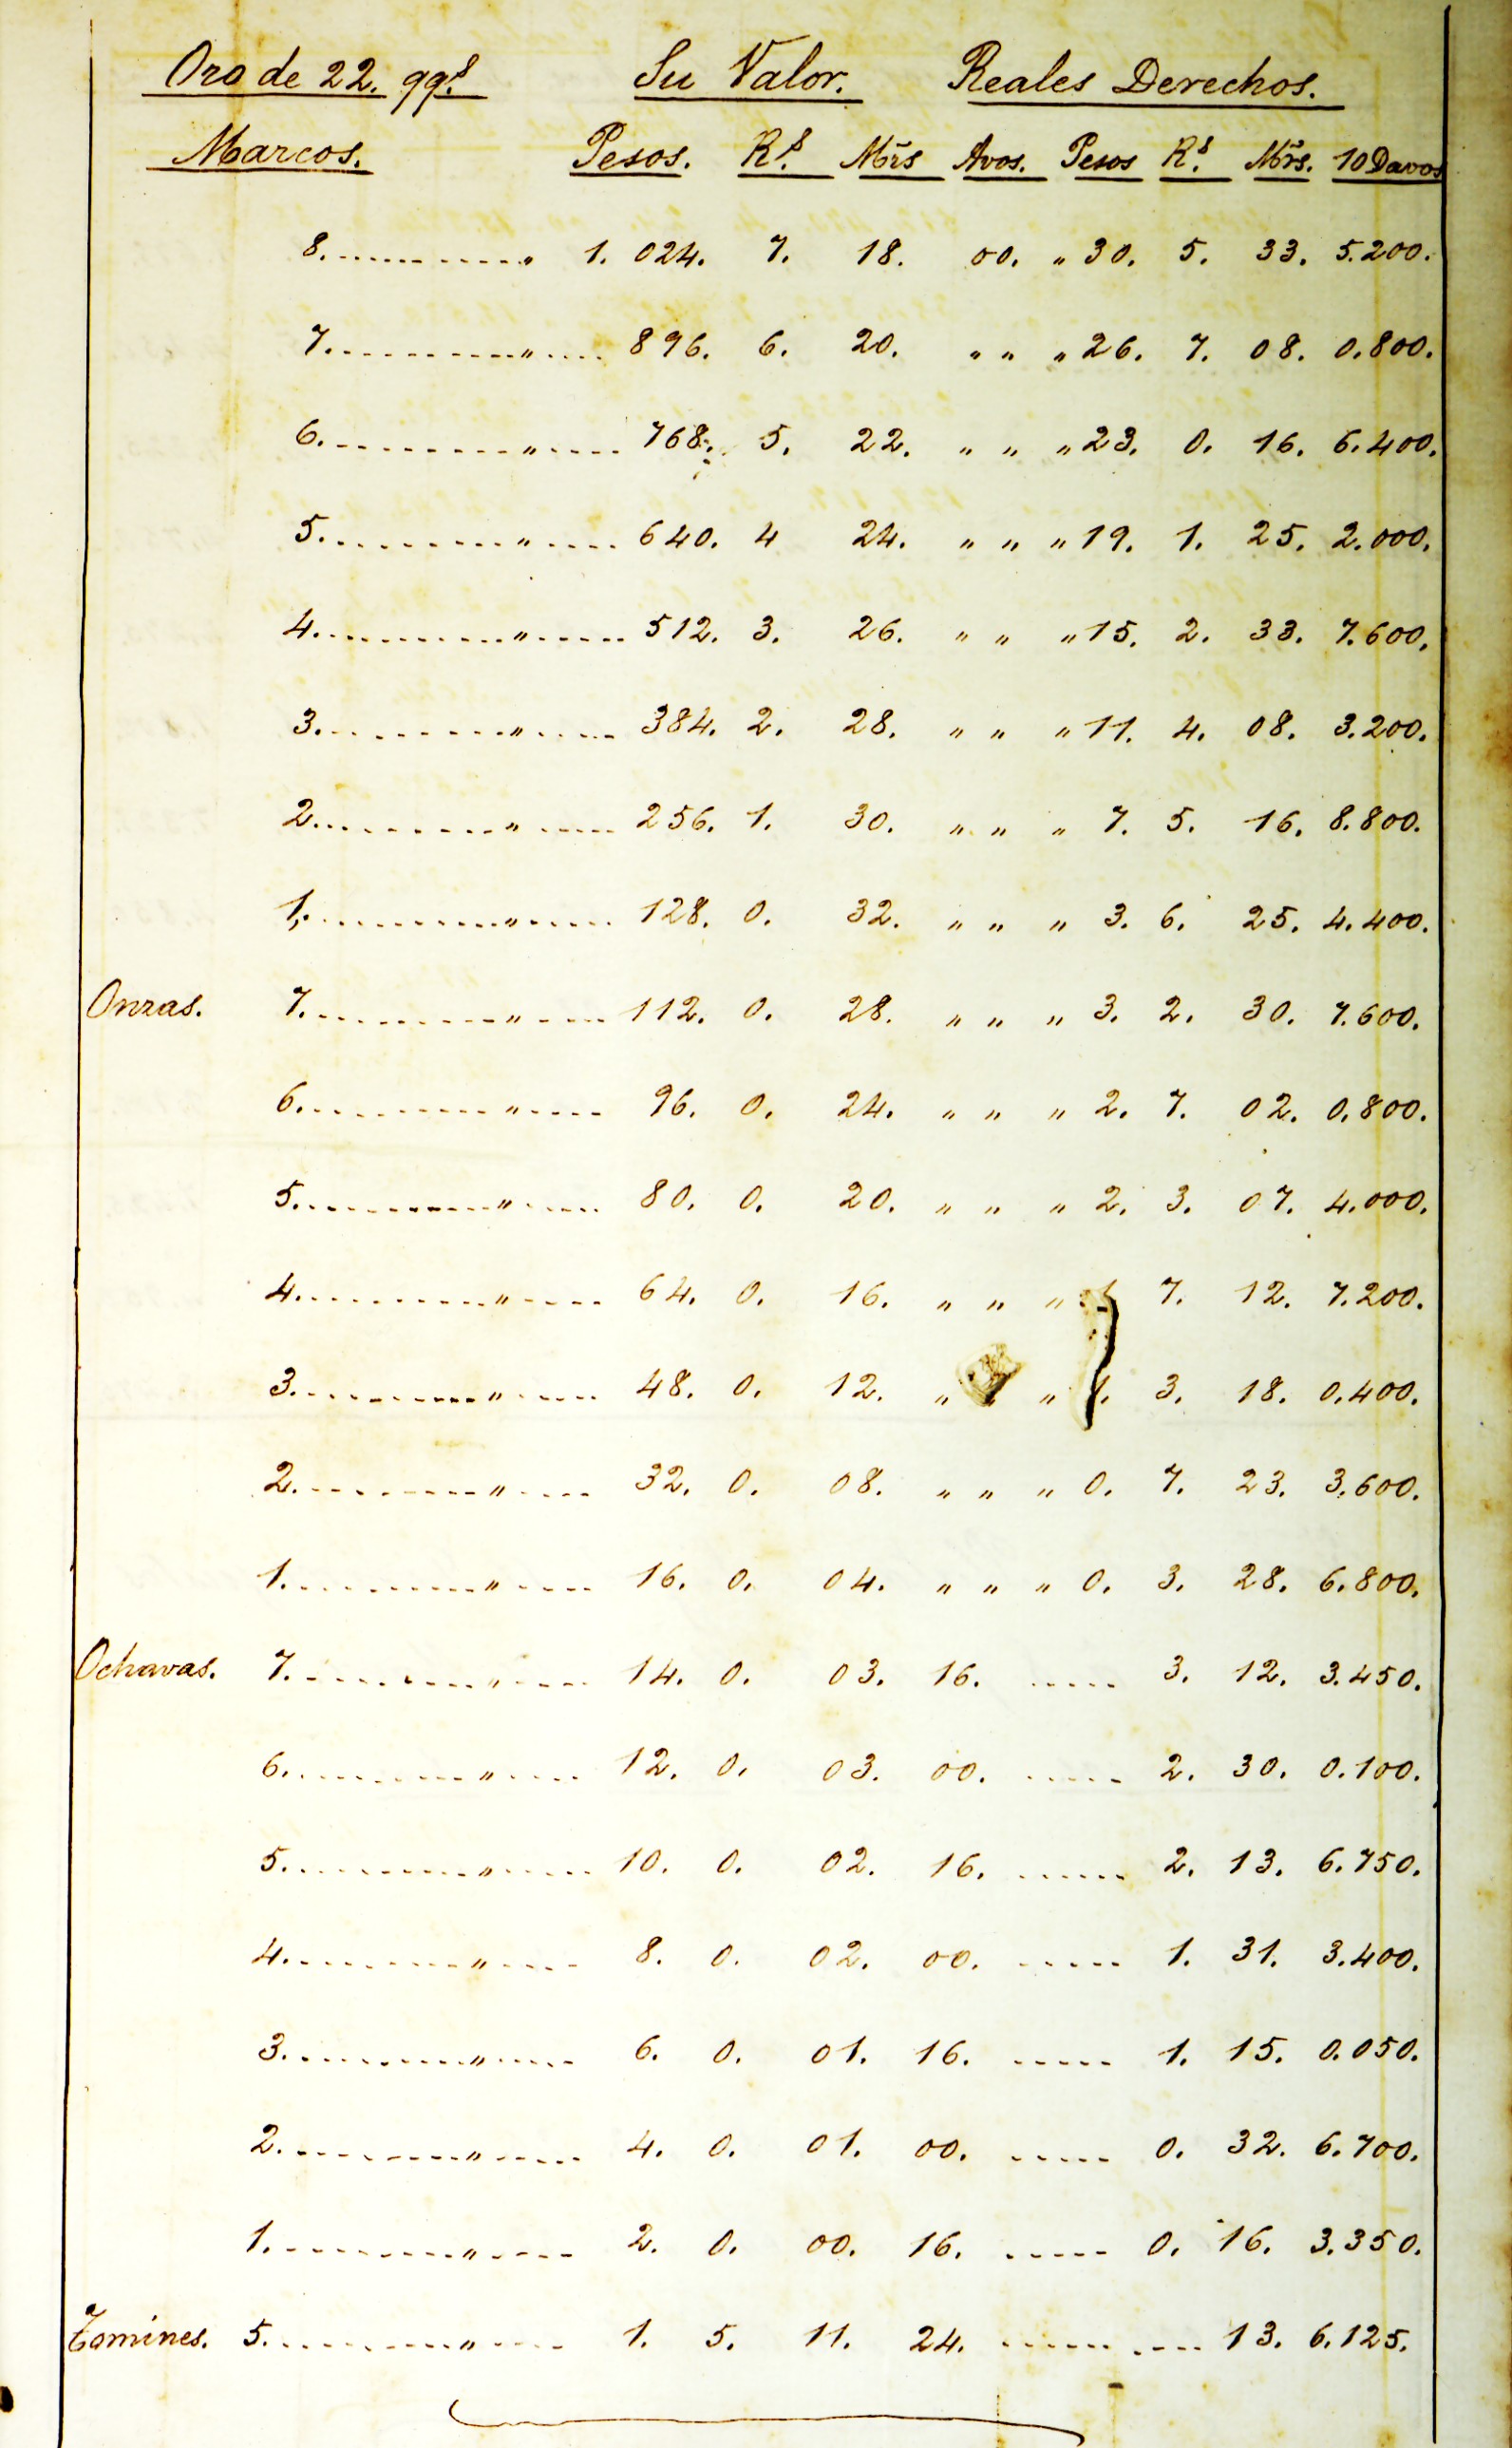 Oro de 22. qqs. Su Valor. Reales Derechos.
Marcos. Pesos. Rs. Mrs Avos. Pesos Rs. Mrs. 10Davos
8. „ 1. 024. 7. 18. 00. „ 30. 5. 33. 5.200.
7. „ 896. 6. 20. „ „ „ 26. 7. 08. 0.800.
6. „ 768. 5. 22. „ „ „ 23. 0. 16. 6.400.
5. „ 640. 4 24. „ „ „ 19. 1. 25. 2.000.
4. „ 512. 3. 26. „ „ „ 15. 2. 33. 7.600.
3. „ 384. 2. 28. „ „ „ 11. 4. 08. 3.200.
2. „ 256. 1. 30. „ „ „ 7. 5. 16. 8.800.
1. „ 128. 0. 32. „ „ „ 3. 6. 25. 4.400.
Onzas. 7. „ 112. 0. 28. „ „ „ 3. 2. 30. 7.600.
6. „ 96. 0. 24. „ „ „ 2. 7. 02. 0.800.
5. „ 80. 0. 20. „ „ „ 2. 3. 07. 4.000.
4. „ 64. 0. 16. „ „ „ 1 7. 12. 7.200.
3. „ 48. 0. 12. „ „ 1. 3. 18. 0.400.
2. „ 32. 0. 08. „ „ „ 0. 7. 23. 3.600.
1. „ 16. 0. 04. „ „ „ 0. 3. 28. 6.800.
Ochavas. 7. „ 14. 0. 03. 16. 3. 12. 3.450.
6. „ 12. 0. 03. 00. 2. 30. 0.100.
5. „ 10. 0. 02. 16. 2. 13. 6.750.
4. „ 8. 0. 02. 00. 1. 31. 3.400.
3. „ 6. 0. 01. 16. 1. 15. 0.050.
2. „ 4. 0. 01. 00. 0. 32. 6.700.
1. „ 2. 0. 00. 16. 0. 16. 3.350.
Tomines. 5. „ 1. 5. 11. 24. 13. 6.125.